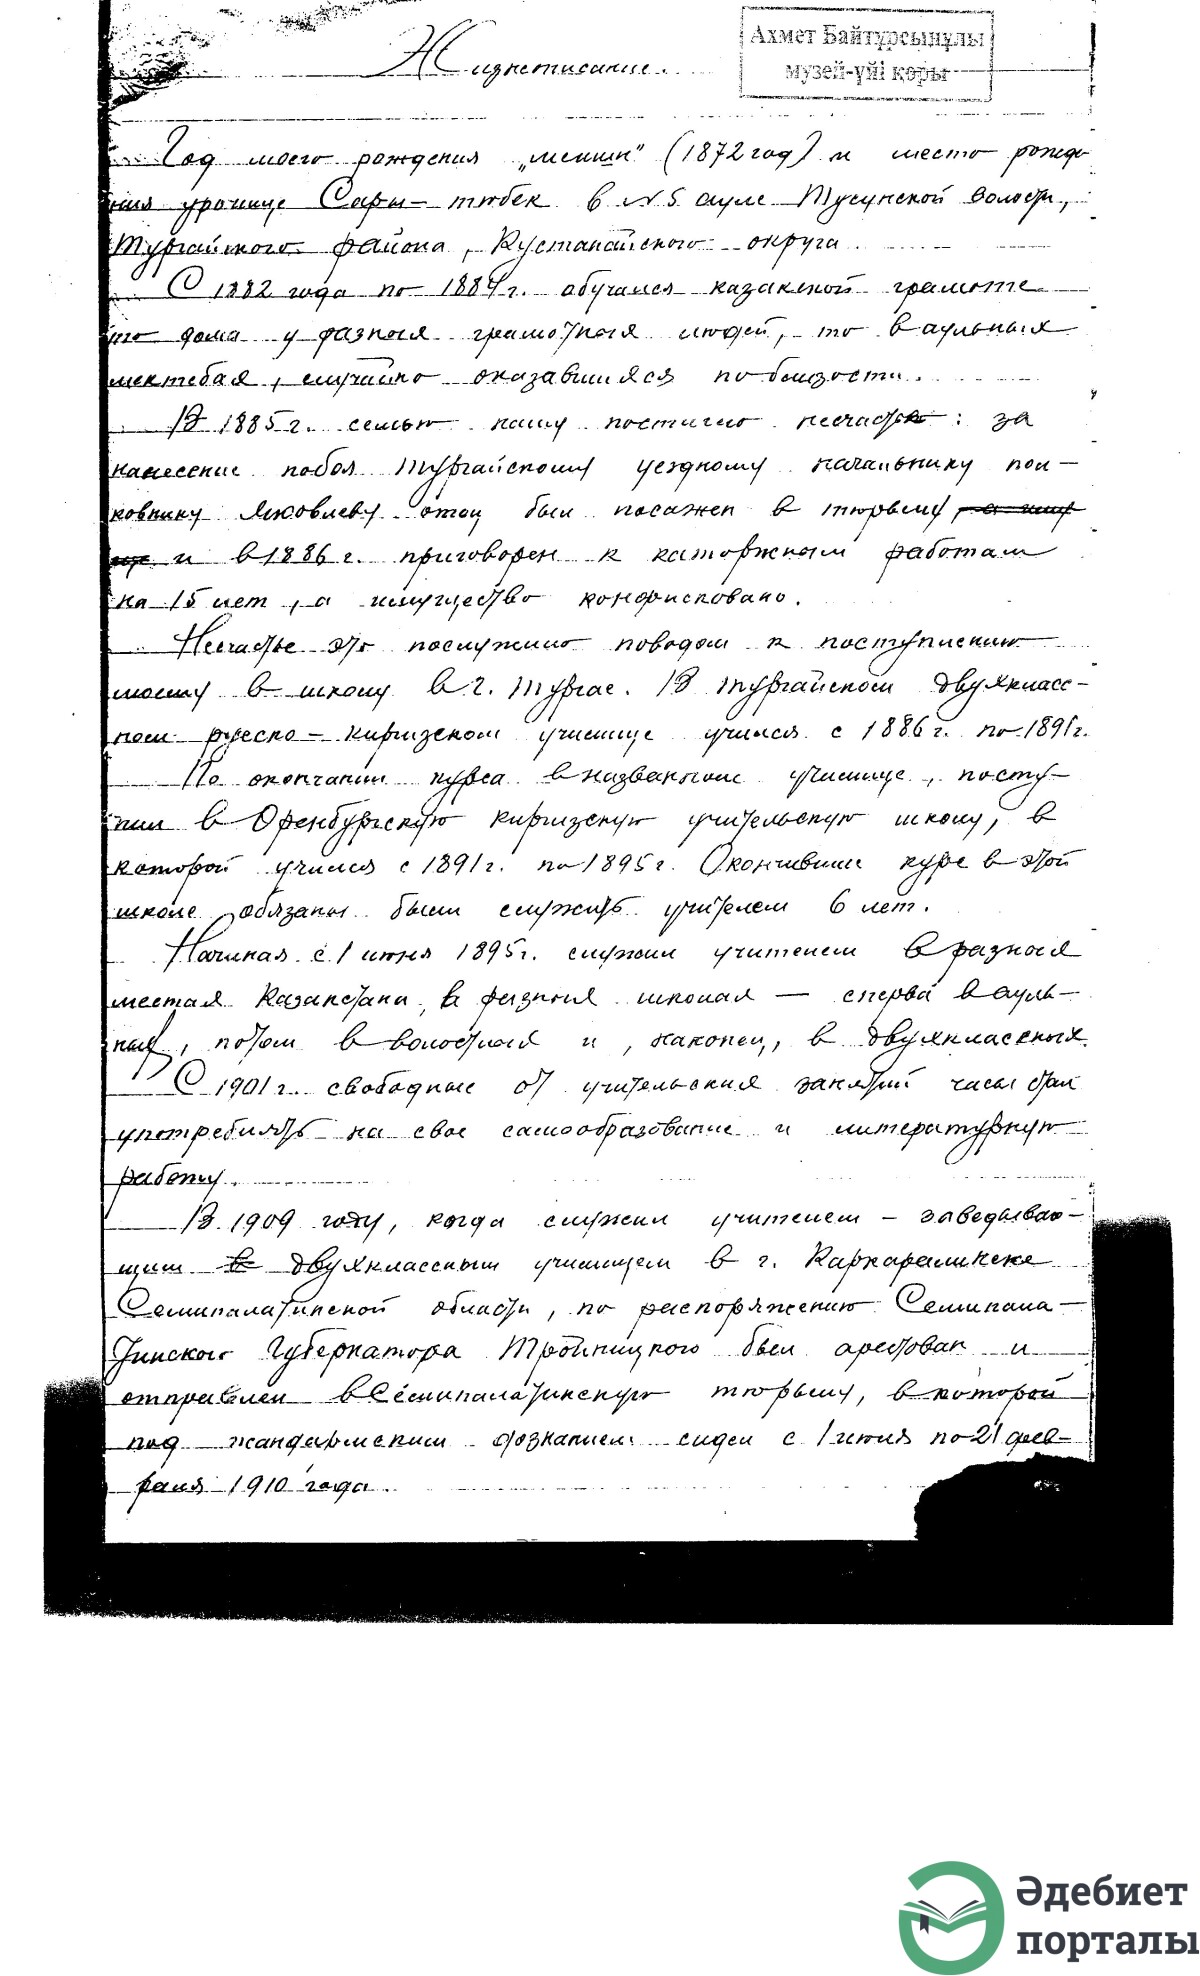 Жизнеописание.
Ахмет Байтұрсынұлы
музей-үйі қоры
Год моего рождения „мешин" (1872 год) и место рожде
ния урочище Сары-тюбек в №5 ауле Тусунской волости,
Тургайского района, Кустанайского округа.
С 1882 года по 1884 г. обучался казакской грамоте
то дома у разных грамотных людей, то в аульных
мектебах, случайно оказавшихся по близости.
В 1885 г. семью нашу постигло несчастье: за
нанесение побоя Тургайскому уездному начальнику пол-
ковнику Яковлеву отец был посажен в тюрьму,
и в 1886 г. приговорен к каторжным работам
на 15 лет, а имущество конфисковано.
Несчастье это послужило поводом к поступлению
моему в школу в г. Тургае. В Тургайском двухкласс-
ном русско-киргизском училище учился с 1886 г. по 1891 г.
По окончании курса в названном училище, посту-
пил в Оренбургскую киргизскую учительскую школу, в
которой учился с 1891 г. по 1895 г. Окончившие курс в этой
школе обязаны были служить учителем 6 лет.
Начиная с 1 июня 1895 г. служил учителем в разных
местах Казакстана, в разных школах — сперва в ауль-
ных, потом в волостных и, наконец, в двухклассных.
С 1901 г. свободные от учительских занятий часы стал
употреблять на свое самообразование и литературную
работу.
В 1909 году, когда служил учителем-заведываю-
щим двухклассным училищем в г. Каркаралинске
Семипалатинской области, по распоряжению Семипала-
тинского Губернатора Тройницкого был арестован и
отправлен в Семипалатинскую тюрьму, в которой
под жандармским дознанием сидел с 1 июля по 21 фев-
раля 1910 года.
Әдебиет
порталы